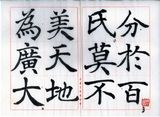 分於百
氏莫不
美天地
為廣大